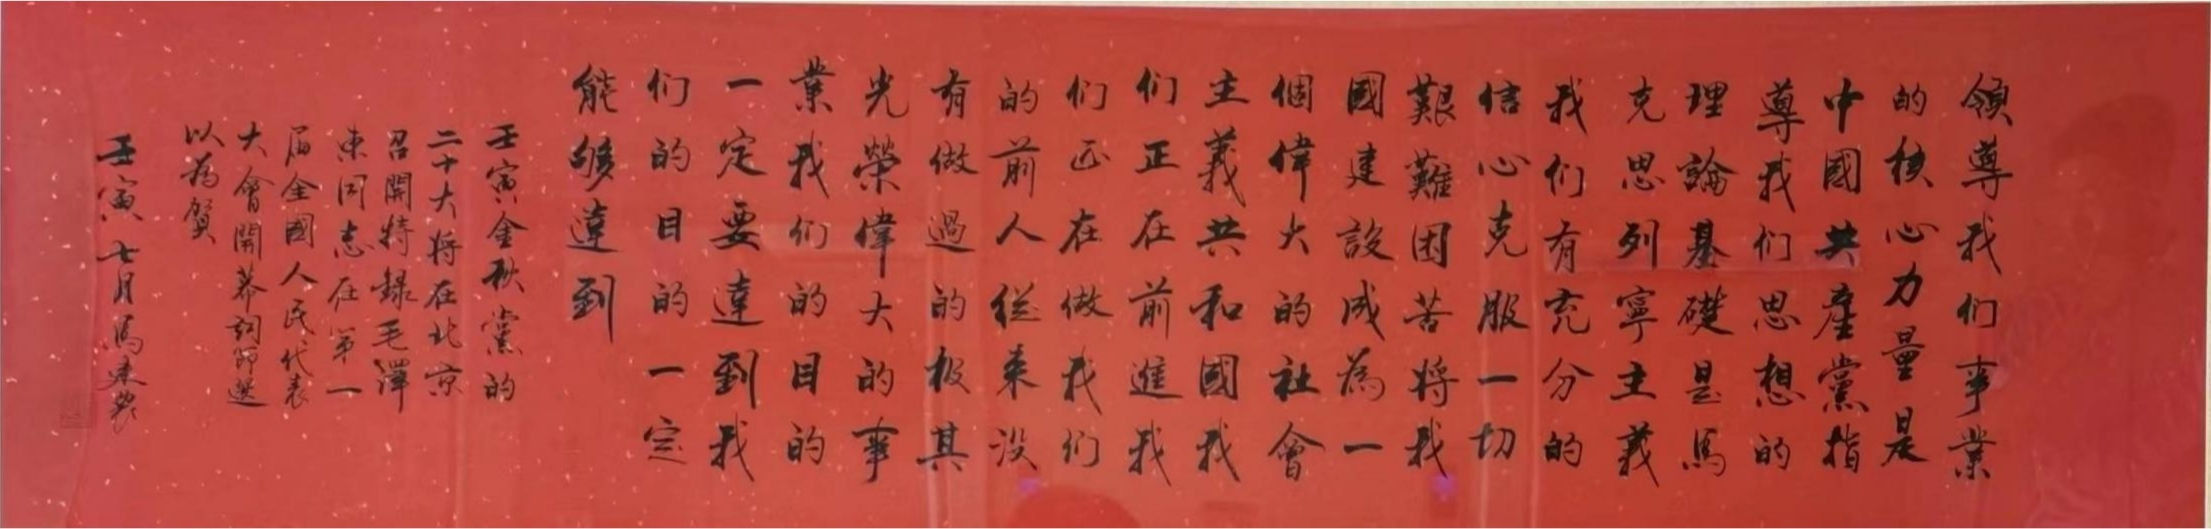 領導我们事業
的核心力量是
中國共產黨指
導我们思想的
理論基礎是馬
克思列寧主義
我们有充分的
信心克服一切
艱難困苦将我
國建設成為一
個偉大的社會
主義共和國我
们正在前進我
们正在做我们
的前人從来没
有做過的极其
光榮偉大的事
業我们的目的
一定要達到我
们的目的一定
能够達到
壬寅金秋黨的
二十大将在北京
召開特録毛澤
東同志在第一
届全國人民代表
大會開幕詞節選
以為賀
壬寅七月馬